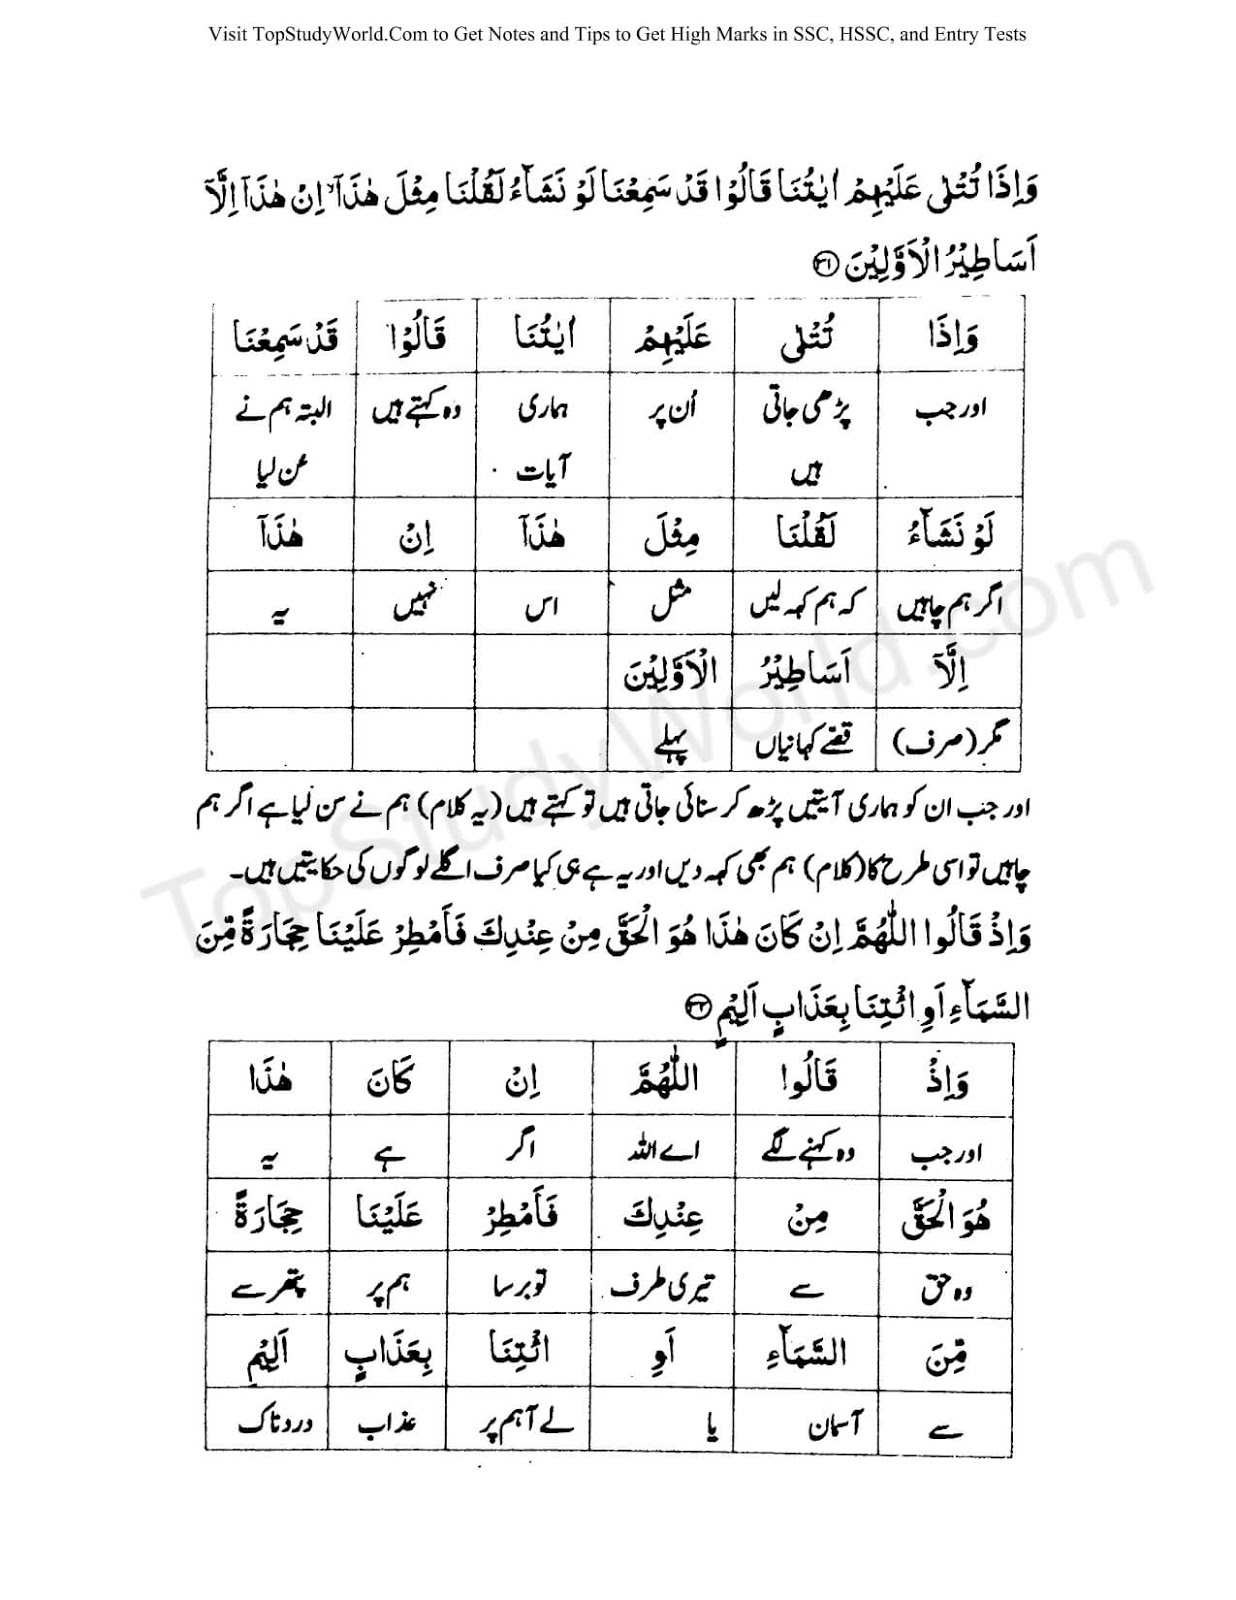 Visit TopStudyWorld.Com to Get Notes and Tips to Get High Marks in SSC, HSSC, and Entry Tests
وَاِذَا تُتْلٰى عَلَيْهِمْ اٰيٰتُنَا قَالُوْا قَدْ سَمِعْنَا لَوْ نَشَآءُ لَقُلْنَا مِثْلَ هٰذَآ ۙ اِنْ هٰذَآ اِلَّآ
اَسَاطِيْرُ الْاَوَّلِيْنَ ﴿۳۱﴾
وَاِذَا تُتْلٰى عَلَيْهِمْ اٰيٰتُنَا قَالُوْا قَدْ سَمِعْنَا
اور جب پڑھی جاتی اُن پر ہماری وہ کہتے ہیں البتہ ہم نے
ہیں آیات سن لیا
لَوْ نَشَآءُ لَقُلْنَا مِثْلَ هٰذَآ اِنْ هٰذَآ
اگر ہم چاہیں کہ ہم کہہ لیں مثل اس نہیں یہ
اِلَّآ اَسَاطِيْرُ الْاَوَّلِيْنَ
مگر (صرف) قصّے کہانیاں پہلے
اور جب ان کو ہماری آیتیں پڑھ کر سنائی جاتی ہیں تو کہتے ہیں (یہ کلام) ہم نے سن لیا ہے اگر ہم
چاہیں تو اسی طرح کا (کلام) ہم بھی کہہ دیں اور یہ ہے ہی کیا صرف اگلے لوگوں کی حکایتیں ہیں۔
وَاِذْ قَالُوا اللّٰهُمَّ اِنْ كَانَ هٰذَا هُوَ الْحَقَّ مِنْ عِنْدِكَ فَاَمْطِرْ عَلَيْنَا حِجَارَةً مِّنَ
السَّمَآءِ اَوِ ائْتِنَا بِعَذَابٍ اَلِيْمٍ ﴿۳۲﴾
وَاِذْ قَالُوا اللّٰهُمَّ اِنْ كَانَ هٰذَا
اور جب وہ کہنے لگے اے اللہ اگر ہے یہ
هُوَ الْحَقَّ مِنْ عِنْدِكَ فَاَمْطِرْ عَلَيْنَا حِجَارَةً
وہ حق سے تیری طرف تو برسا ہم پر پتھر سے
مِّنَ السَّمَآءِ اَوِ ائْتِنَا بِعَذَابٍ اَلِيْمٍ
سے آسمان یا لے آ ہم پر عذاب دردناک
TopStudyWorld.com